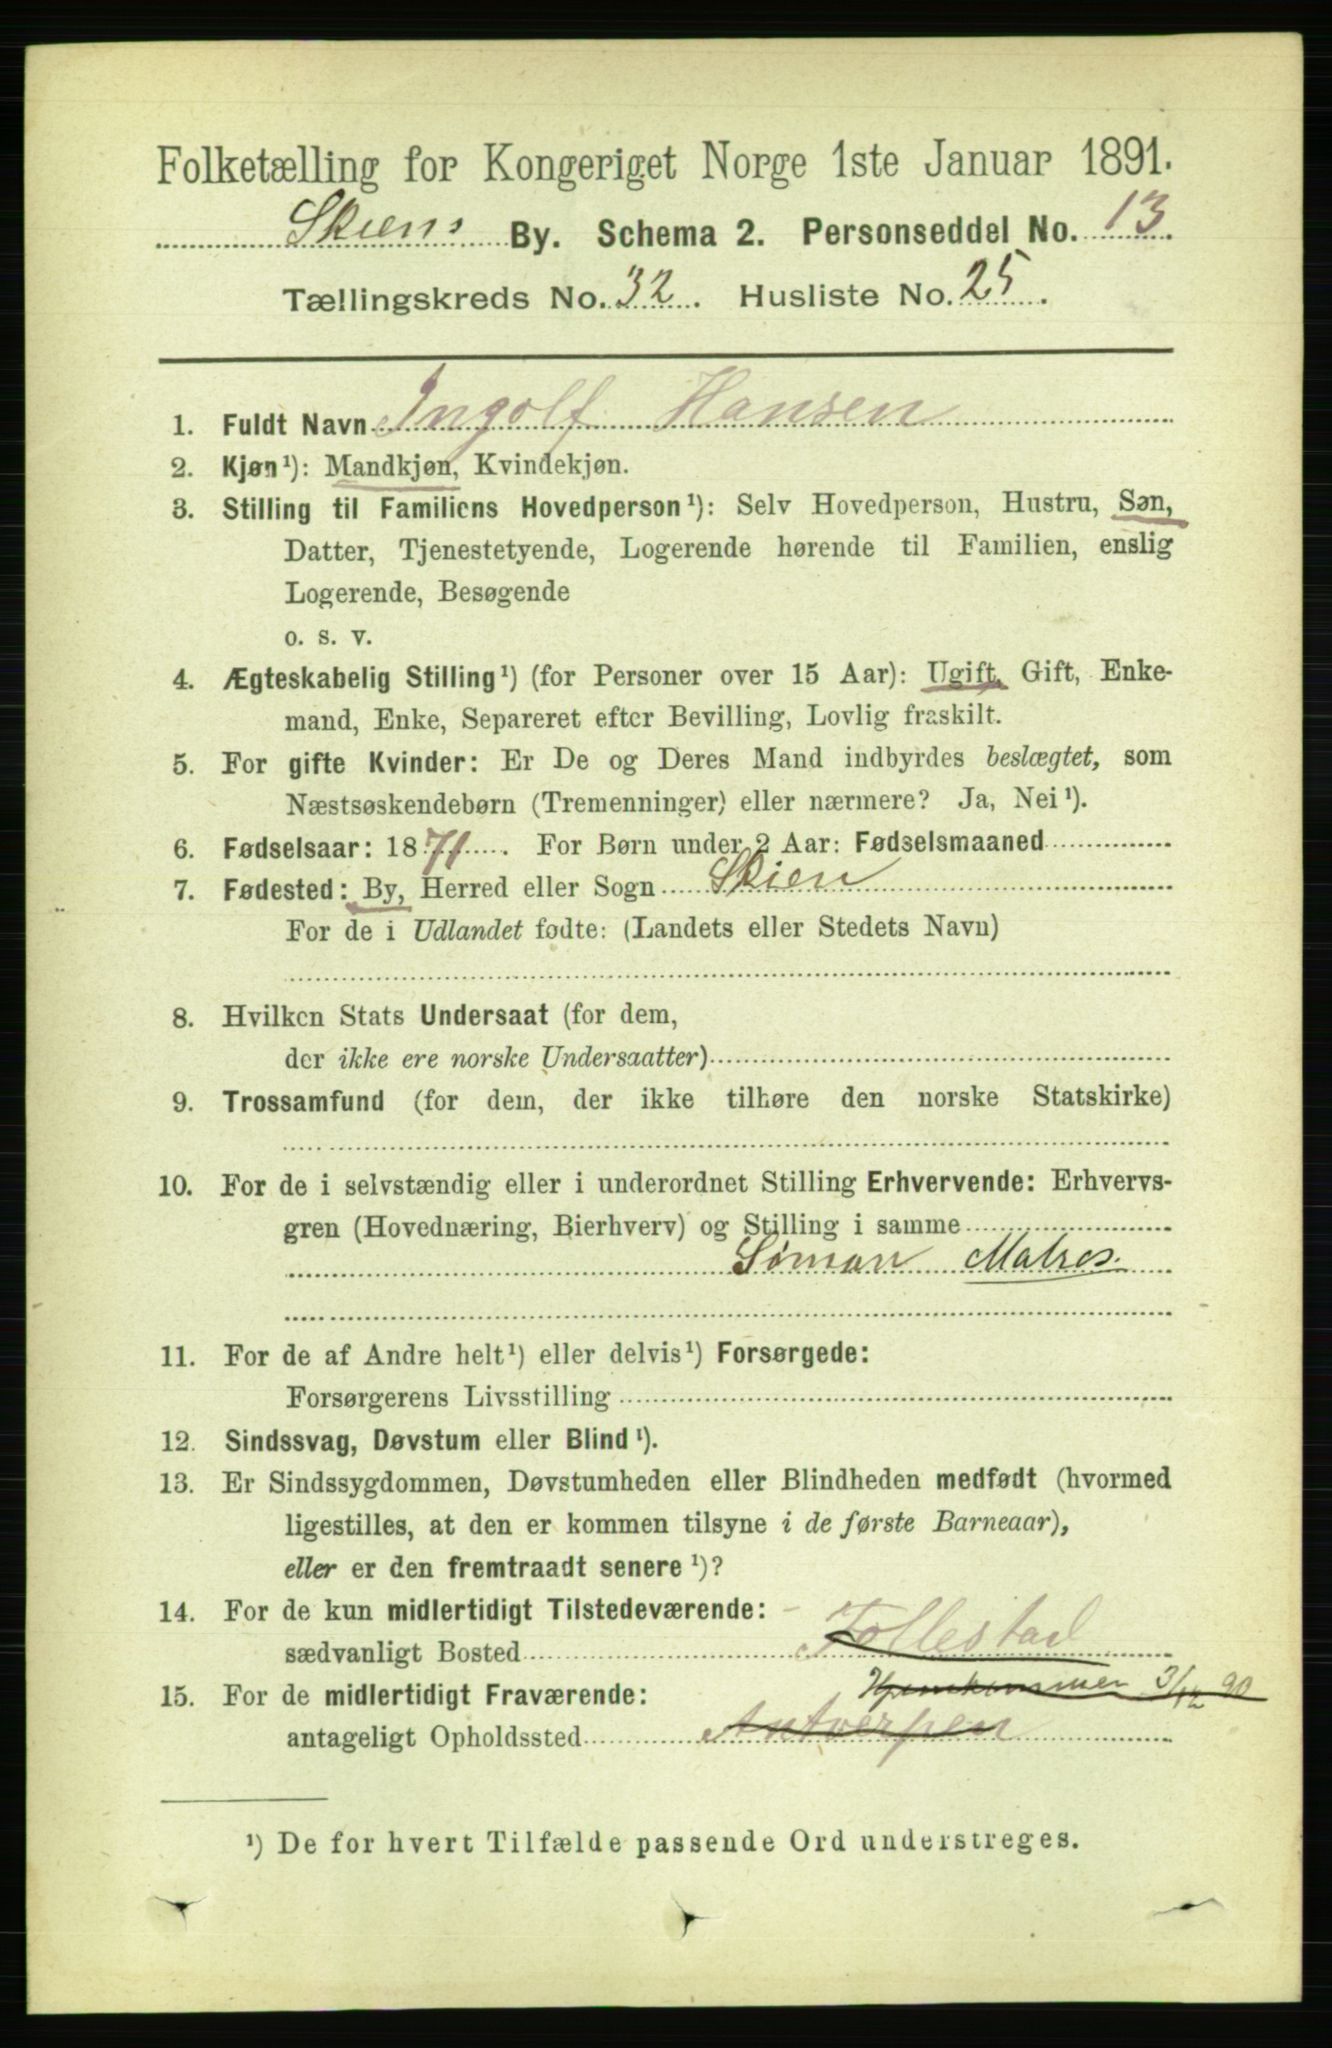 Folketælling for Kongeriget Norge 1ste Januar 1891.
Skiens By. Schema 2. Personseddel No. 13.
Tællingskreds No. 32. Husliste No. 25.
1. Fuldt Navn Ingolf Hansen
2. Kjøn¹): Mandkjøn, Kvindekjøn.
3. Stilling til Familiens Hovedperson¹): Selv Hovedperson, Hustru, Søn,
Datter, Tjenestetyende, Logerende hørende til Familien, enslig
Logerende, Besøgende
o. s. v.
4. Ægteskabelig Stilling¹) (for Personer over 15 Aar): Ugift, Gift, Enke-
mand, Enke, Separeret efter Bevilling, Lovlig fraskilt.
5. For gifte Kvinder: Er De og Deres Mand indbyrdes beslægtet, som
Næstsøskendebørn (Tremenninger) eller nærmere? Ja, Nei¹).
6. Fødselsaar: 1871. For Børn under 2 Aar: Fødselsmaaned
7. Fødested: By, Herred eller Sogn Skien
For de i Udlandet fødte: (Landets eller Stedets Navn)
8. Hvilken Stats Undersaat (for dem,
der ikke ere norske Undersaatter)
9. Trossamfund (for dem, der ikke tilhøre den norske Statskirke)
10. For de i selvstændig eller i underordnet Stilling Erhvervende: Erhvervs-
gren (Hovednæring, Bierhverv) og Stilling i samme
Söman Matros.
11. For de af Andre helt¹) eller delvis¹) Forsørgede:
Forsørgerens Livsstilling
12. Sindssvag, Døvstum eller Blind¹).
13. Er Sindssygdommen, Døvstumheden eller Blindheden medfødt (hvormed
ligestilles, at den er kommen tilsyne i de første Barneaar),
eller er den fremtraadt senere¹)?
14. For de kun midlertidigt Tilstedeværende:
sædvanligt Bosted Follestad
Hjemkommer 3/12 90
15. For de midlertidigt Fraværende:
antageligt Opholdssted Antverpen
¹) De for hvert Tilfælde passende Ord understreges.